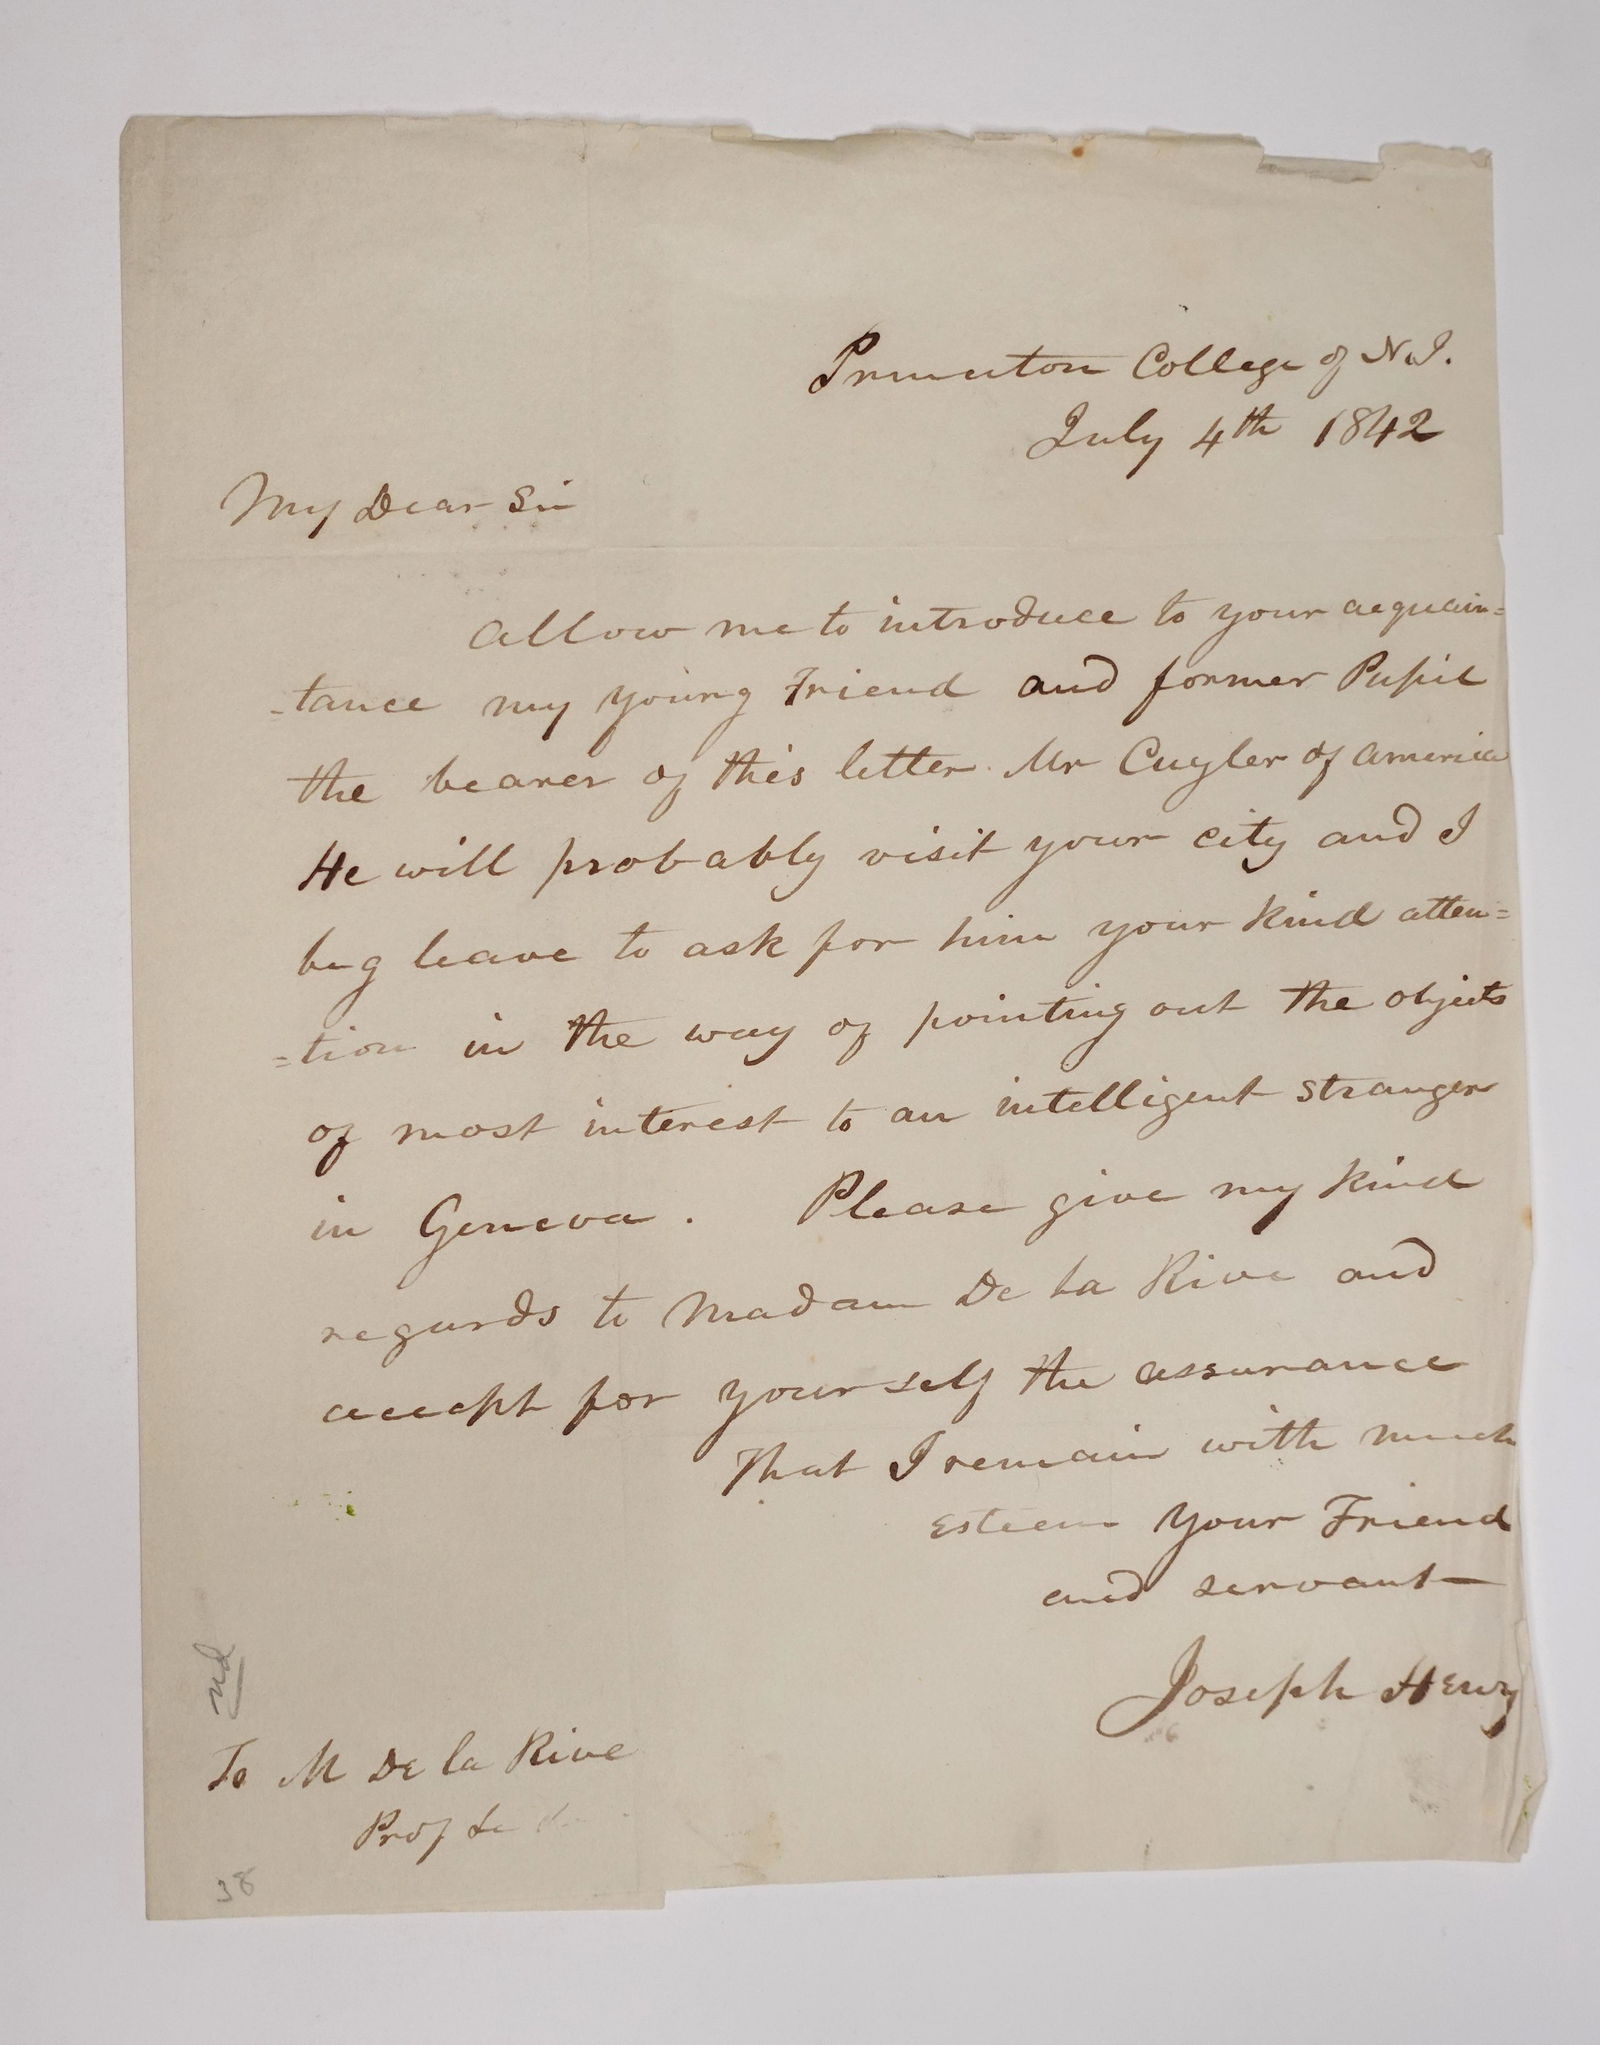 Princeton College of N.J.
July 4th 1842
My Dear Sir
Allow me to introduce to your acquain=
-tance my young Friend and former Pupil
the bearer of this letter Mr Cuyler of America
He will probably visit your city and I
beg leave to ask for him your kind atten=
=tion in the way of pointing out the objects
of most interest to an intelligent stranger
in Geneva. Please give my kind
regards to Madam De La Rive and
accept for yourself the assurance
That I remain with much
Esteem Your Friend
and servant
Joseph Henry
nd
To M De la Rive
Prof
38